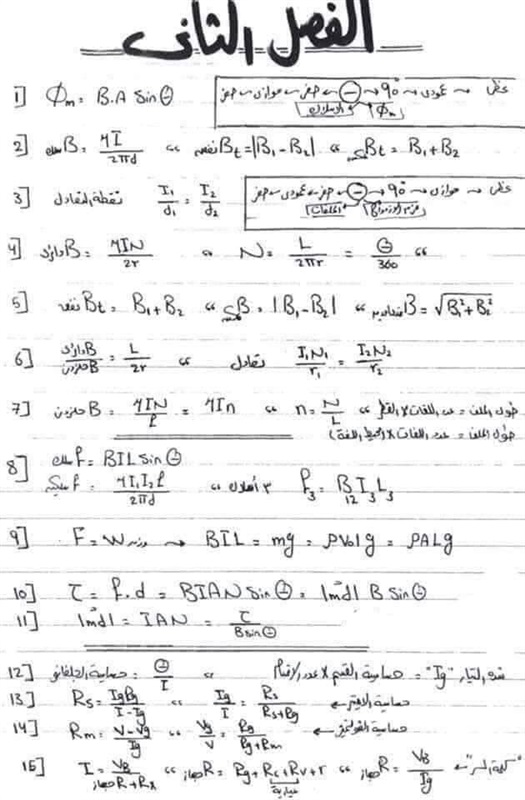 الفصل الثانى
1] Φm = B.A Sin θ
عظمى ← عمودى ← 90° ← ⊖ ← صفر ← موازى ← صفر
Φm
2] سلك B = μI / 2πd " نفس Bt = |B1 - B2| " عكس Bt = B1 + B2
3] نقطة التعادل I1/d1 = I2/d2
عظمى ← موازى ← 90° ← ⊖ ← صفر ← عمودى ← صفر
عزم الازدواج
4] دائرى B = μIN / 2r " N = L / 2πr = θ / 360 "
5] نفس Bt = B1 + B2 " عكس B = |B1 - B2| " متعامد B = √B1² + B2²
6] B دائرى / B حلزونى = L / 2r " تعادل I1N1 / r1 = I2N2 / r2
7] حلزونى B = μIN / L = μIn " n = N / L " طول الملف = عدد اللفات × القطر
طول الملف = عدد اللفات × (محيط اللفة)
8] سلك F = BIL sin θ
F = μI1I2ℓ / 2πd ٣ أسلاك " F3 = B12 I3 L3
9] F = W وزنه → BIL = mg = ρVol g = ρALg
10] τ = F.d = BIAN Sin θ = |md| B Sin θ
11] |md| = IAN = τ / B sin θ
12] حساسية الجلفانو = θ / I " شدة التيار "Ig" = حساسية القسم × عدد الأقسام
13] Rs = IgRg / I - Ig " Ig / I = Rs / Rs + Rg ← حساسية الاميتر
14] Rm = V - Vg / Ig " Vg / V = Rg / Rg + Rm ← حساسية الفولتميتر
15] I = VB / جهاز R + Rx " جهاز R = Rg + Rc + Rv + r " جهاز R = VB / Ig
عيارية